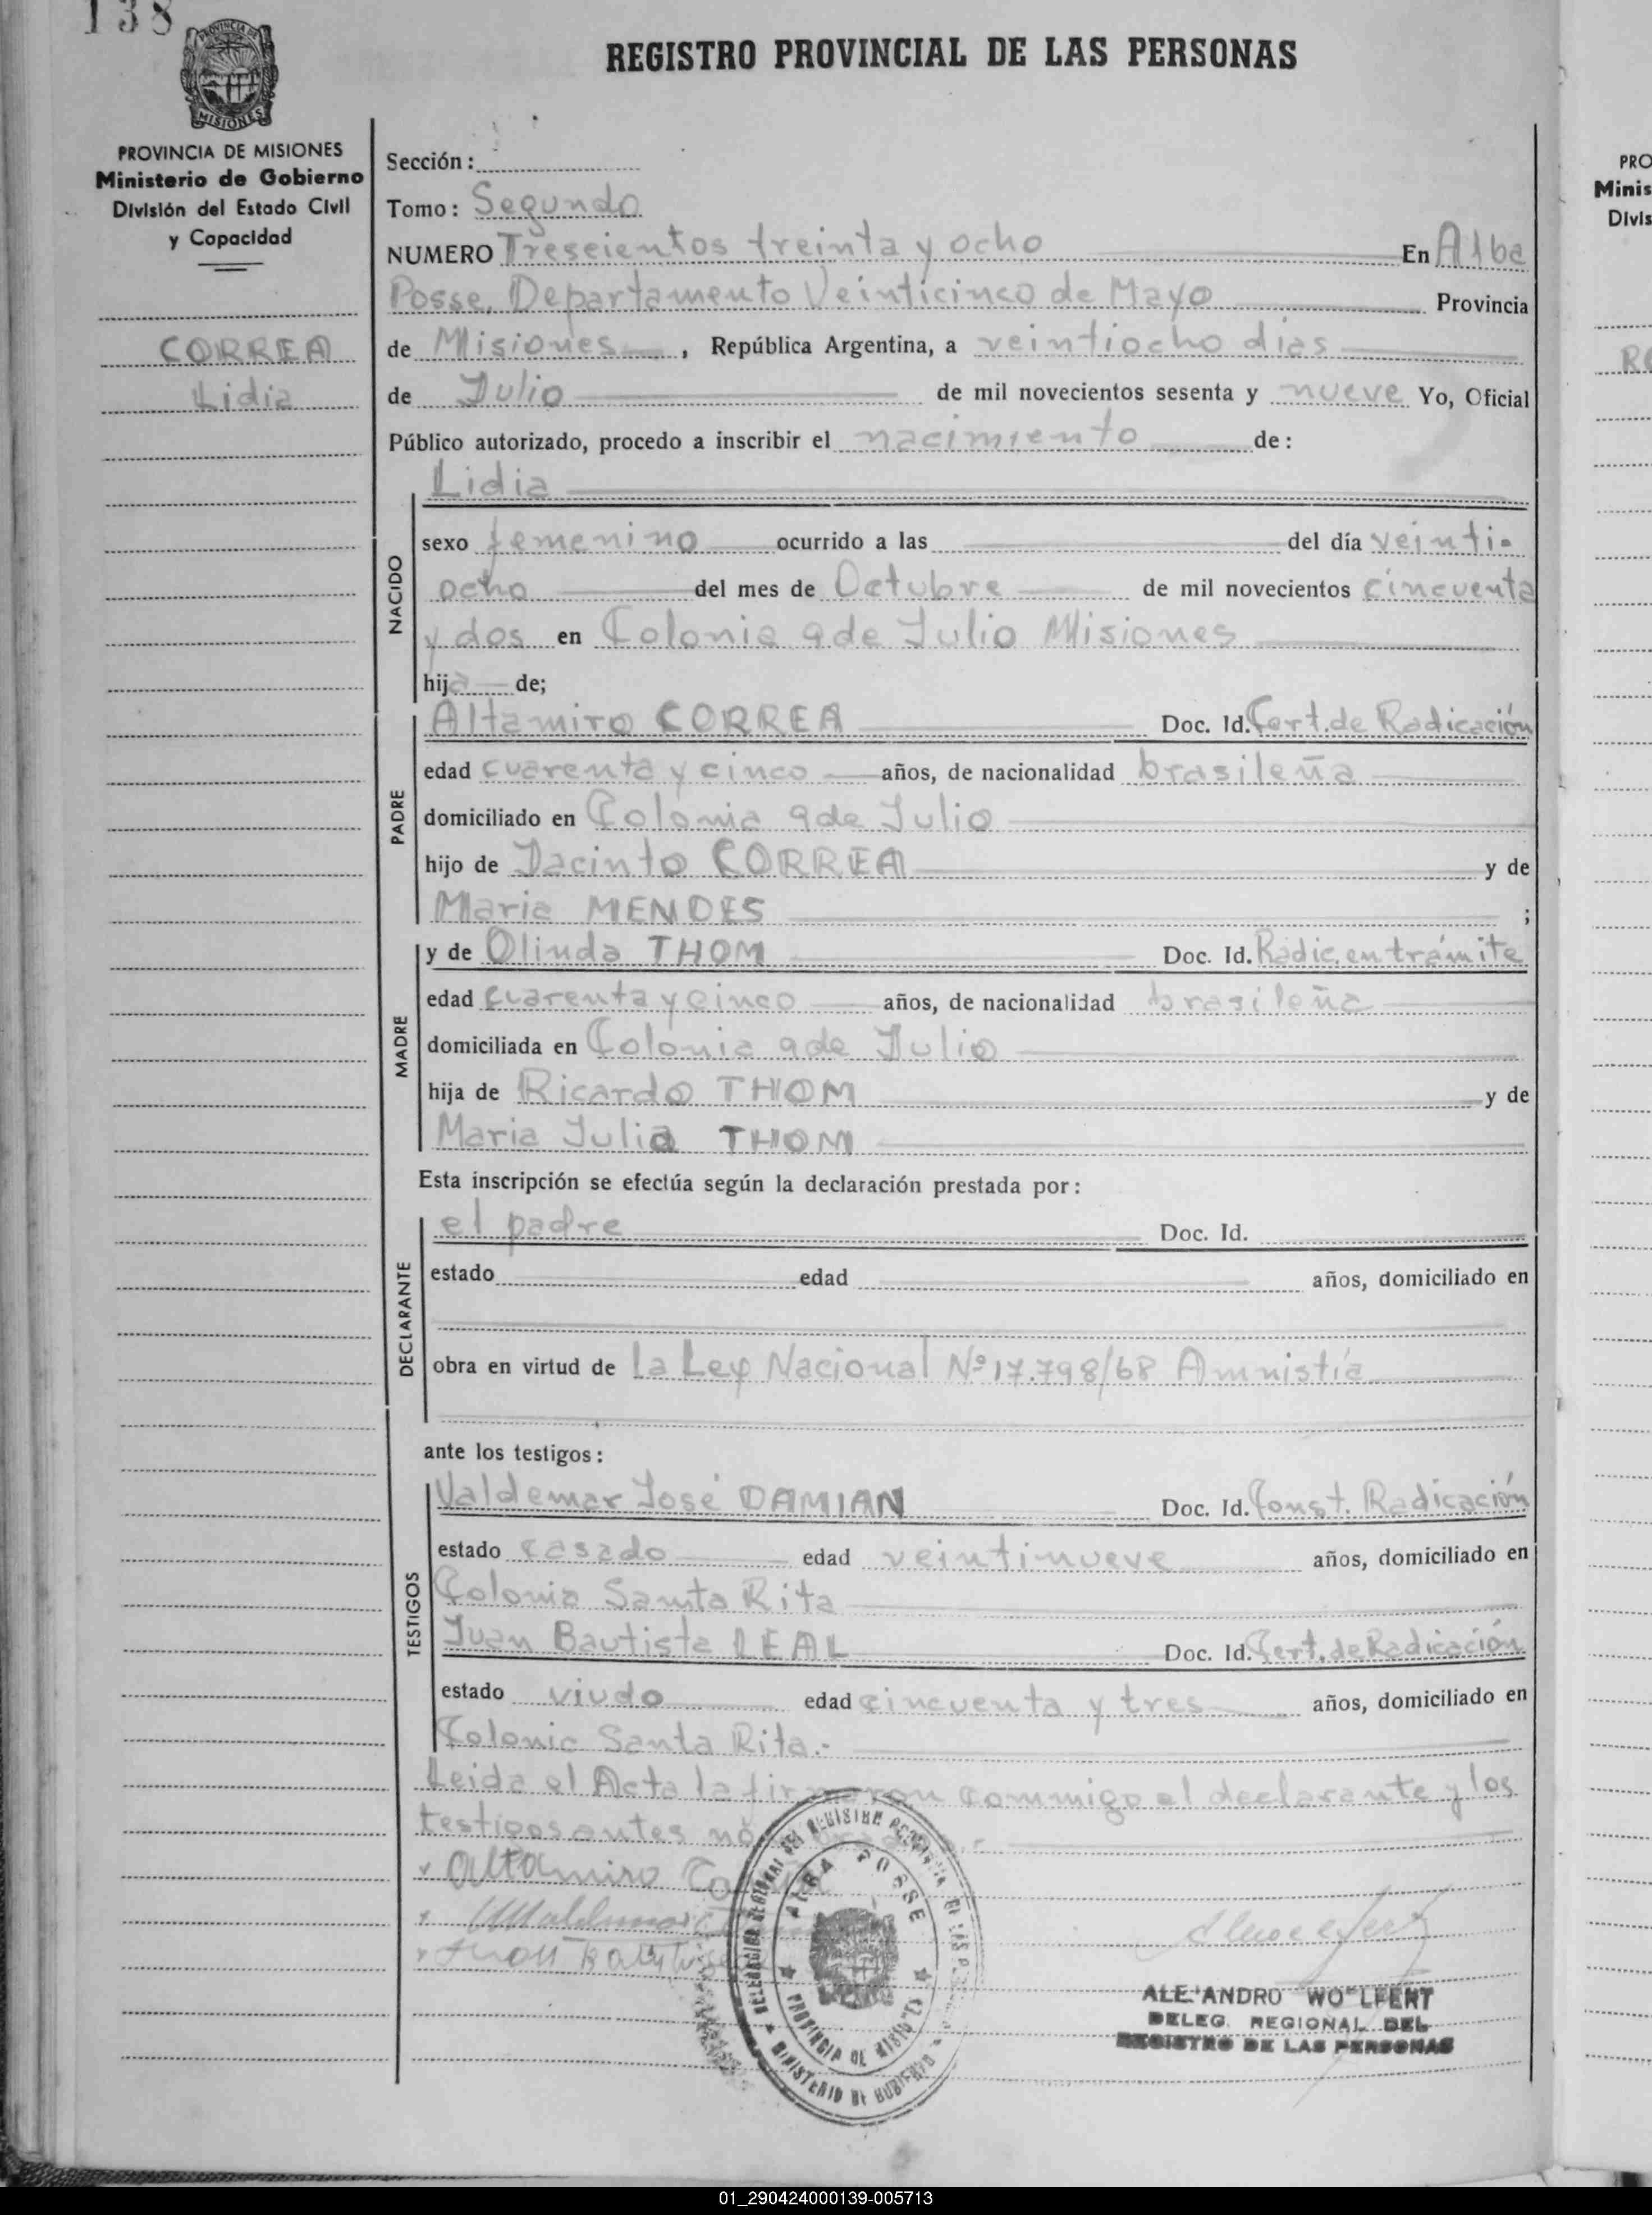 138
REGISTRO PROVINCIAL DE LAS PERSONAS
MISIONES
PROVINCIA DE MISIONES
Ministerio de Gobierno
División del Estado Civil
y Capacidad
CORREA
Lidia
Sección:
Tomo: Segundo
NUMERO Trescientos treinta y ocho En Alba
Posse, Departamento Veinticinco de Mayo Provincia
de Misiones, República Argentina, a veintiocho dias
de Julio de mil novecientos sesenta y nueve Yo, Oficial
Público autorizado, procedo a inscribir el nacimiento de:
Lidia
NACIDO
sexo femenino ocurrido a las del día veinti-
ocho del mes de Octubre de mil novecientos cincuenta
y dos en Colonia 9 de Julio Misiones
hija de;
PADRE
Altamiro CORREA Doc. Id. Cert. de Radicación
edad cuarenta y cinco años, de nacionalidad brasileña
domiciliado en Colonia 9 de Julio
hijo de Jacinto CORREA y de
Maria MENDES ;
MADRE
y de Olinda THOM Doc. Id. Radic. en trámite
edad cuarenta y cinco años, de nacionalidad brasileña
domiciliada en Colonia 9 de Julio
hija de Ricardo THOM y de
Maria Julia THOM
Esta inscripción se efectúa según la declaración prestada por:
DECLARANTE
el padre Doc. Id.
estado edad años, domiciliado en
obra en virtud de la Ley Nacional Nº 17.798/68 Amnistía
ante los testigos:
TESTIGOS
Valdemar José DAMIAN Doc. Id. Const. Radicación
estado casado edad veintinueve años, domiciliado en
Colonia Santa Rita
Juan Bautista LEAL Doc. Id. Cert. de Radicación
estado viudo edad cincuenta y tres años, domiciliado en
Colonia Santa Rita.-
Leida el Acta la firmaron conmigo el declarante y los
testigos antes
Altamiro
ALBA POSSE
PROVINCIA DE MISIONES
MINISTERIO DE GOBIERNO
ALEJANDRO WOLFERT
DELEG. REGIONAL DEL
REGISTRO DE LAS PERSONAS
PRO
Minis
Divis
01_290424000139-005713